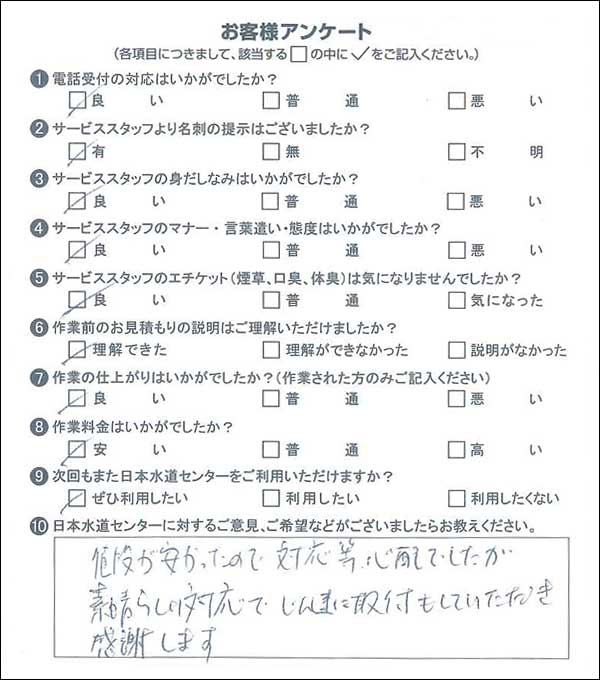 お客様アンケート
(各項目につきまして、該当する□の中に✓をご記入ください。)
❶電話受付の対応はいかがでしたか?
☑良い □普通 □悪い
❷サービススタッフより名刺の提示はございましたか?
☑有 □無 □不明
❸サービススタッフの身だしなみはいかがでしたか?
☑良い □普通 □悪い
❹サービススタッフのマナー・言葉遣い・態度はいかがでしたか?
☑良い □普通 □悪い
❺サービススタッフのエチケット(煙草、口臭、体臭)は気になりませんでしたか?
☑良い □普通 □気になった
❻作業前のお見積もりの説明はご理解いただけましたか?
☑理解できた □理解ができなかった □説明がなかった
❼作業の仕上がりはいかがでしたか?(作業された方のみご記入ください)
☑良い □普通 □悪い
❽作業料金はいかがでしたか?
☑安い □普通 □高い
❾次回もまた日本水道センターをご利用いただけますか?
☑ぜひ利用したい □利用したい □利用したくない
❿日本水道センターに対するご意見、ご希望などがございましたらお教えください。
値段が安かったので対応等、心配でしたが
素晴らしい対応でじん速に取付もしていただき
感謝します